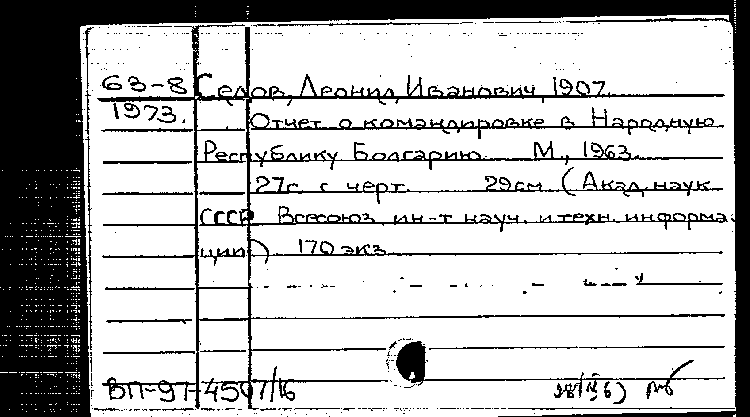 63-8 Седов, Леонид Иванович, 1907
1973. Отчет о командировке в Народную
Республику Болгарию М., 1963.
27с. с черт. 29см (Акад. наук
СССР Всесоюз. ин-т науч. и техн. информа-
ции) 170 экз.
ВП-97-4507/16